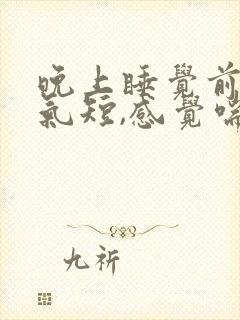 晚上睡覺前
氣短,感覺喘
九祈